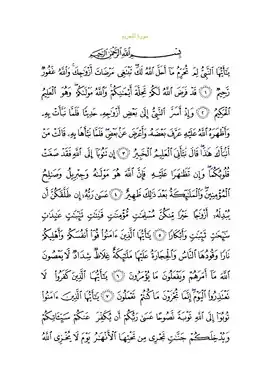 سورة التحريم
بِسْمِ اللَّهِ الرَّحْمَٰنِ الرَّحِيمِ
يَٰٓأَيُّهَا ٱلنَّبِىُّ لِمَ تُحَرِّمُ مَآ أَحَلَّ ٱللَّهُ لَكَ تَبْتَغِى مَرْضَاتَ أَزْوَٰجِكَ وَٱللَّهُ غَفُورٌ
رَّحِيمٌ ١ قَدْ فَرَضَ ٱللَّهُ لَكُمْ تَحِلَّةَ أَيْمَٰنِكُمْ وَٱللَّهُ مَوْلَىٰكُمْ وَهُوَ ٱلْعَلِيمُ
ٱلْحَكِيمُ ٢ وَإِذْ أَسَرَّ ٱلنَّبِىُّ إِلَىٰ بَعْضِ أَزْوَٰجِهِۦ حَدِيثًا فَلَمَّا نَبَّأَتْ بِهِۦ
وَأَظْهَرَهُ ٱللَّهُ عَلَيْهِ عَرَّفَ بَعْضَهُۥ وَأَعْرَضَ عَنۢ بَعْضٍ فَلَمَّا نَبَّأَهَا بِهِۦ قَالَتْ مَنْ
أَنۢبَأَكَ هَٰذَا قَالَ نَبَّأَنِىَ ٱلْعَلِيمُ ٱلْخَبِيرُ ٣ إِن تَتُوبَآ إِلَى ٱللَّهِ فَقَدْ صَغَتْ
قُلُوبُكُمَا وَإِن تَظَٰهَرَا عَلَيْهِ فَإِنَّ ٱللَّهَ هُوَ مَوْلَىٰهُ وَجِبْرِيلُ وَصَٰلِحُ
ٱلْمُؤْمِنِينَ وَٱلْمَلَٰٓئِكَةُ بَعْدَ ذَٰلِكَ ظَهِيرٌ ٤ عَسَىٰ رَبُّهُۥٓ إِن طَلَّقَكُنَّ أَن
يُبْدِلَهُۥٓ أَزْوَٰجًا خَيْرًا مِّنكُنَّ مُسْلِمَٰتٍ مُّؤْمِنَٰتٍ قَٰنِتَٰتٍ تَٰٓئِبَٰتٍ عَٰبِدَٰتٍ
سَٰٓئِحَٰتٍ ثَيِّبَٰتٍ وَأَبْكَارًا ٥ يَٰٓأَيُّهَا ٱلَّذِينَ ءَامَنُوا۟ قُوٓا۟ أَنفُسَكُمْ وَأَهْلِيكُمْ
نَارًا وَقُودُهَا ٱلنَّاسُ وَٱلْحِجَارَةُ عَلَيْهَا مَلَٰٓئِكَةٌ غِلَاظٌ شِدَادٌ لَّا يَعْصُونَ
ٱللَّهَ مَآ أَمَرَهُمْ وَيَفْعَلُونَ مَا يُؤْمَرُونَ ٦ يَٰٓأَيُّهَا ٱلَّذِينَ كَفَرُوا۟ لَا
تَعْتَذِرُوا۟ ٱلْيَوْمَ إِنَّمَا تُجْزَوْنَ مَا كُنتُمْ تَعْمَلُونَ ٧ يَٰٓأَيُّهَا ٱلَّذِينَ ءَامَنُوا۟
تُوبُوٓا۟ إِلَى ٱللَّهِ تَوْبَةً نَّصُوحًا عَسَىٰ رَبُّكُمْ أَن يُكَفِّرَ عَنكُمْ سَيِّـَٔاتِكُمْ
وَيُدْخِلَكُمْ جَنَّٰتٍ تَجْرِى مِن تَحْتِهَا ٱلْأَنْهَٰرُ يَوْمَ لَا يُخْزِى ٱللَّهُ